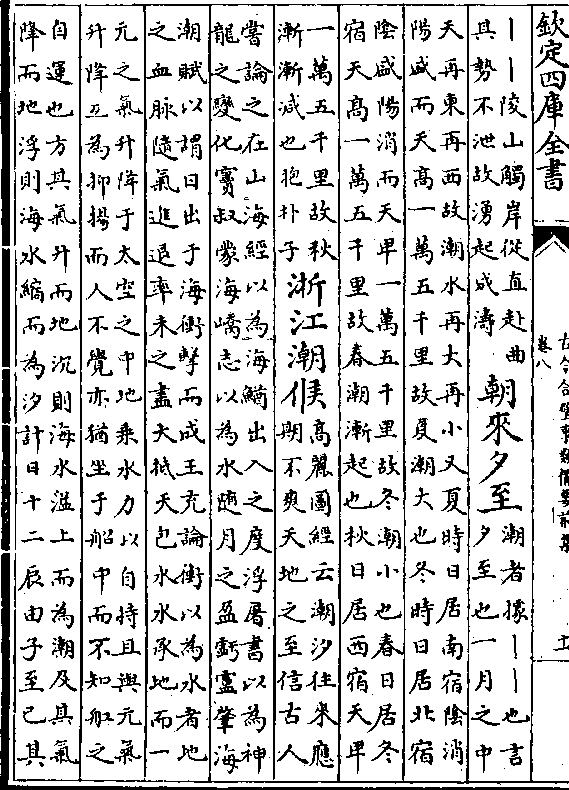 欽定四庫全書
古今合璧事類備要前集
卷八
｜｜陵山觸岸從直赴曲
其勢不泄故湧起成濤
朝來夕至
潮者據｜｜也言
夕至也一月之中
天再東再西故潮水再大再小又夏時日居南宿陰消
陽盛而天高一萬五千里故夏潮大也冬時日居北宿
陰盛陽消而天卑一萬五千里故冬潮小也春日居冬
宿天高一萬五千里故春潮漸起也秋日居西宿天卑
一萬五千里故秋
漸漸減也抱朴子
浙江潮候
高麗圖經云潮汐往來應
期不爽天地之至信古人
嘗論之在山海經以為海鰌出入之度浮屠書以為神
龍之變化竇叔蒙海嶠志以為水隨月之盈虧盧肇海
潮賦以謂日出于海衝擊而成王充論衡以為水者地
之血脉隨氣進退率未之盡大抵天包水水承地而一
元之氣升降于太空之中地乘水力以自持且與元氣
升降互為抑揚而人不覺亦猶坐于船中而不知船之
自運也方其氣升而地沉則海水溢上而為潮及其氣
降而地浮則海水縮而為汐計日十二辰由子至巳其